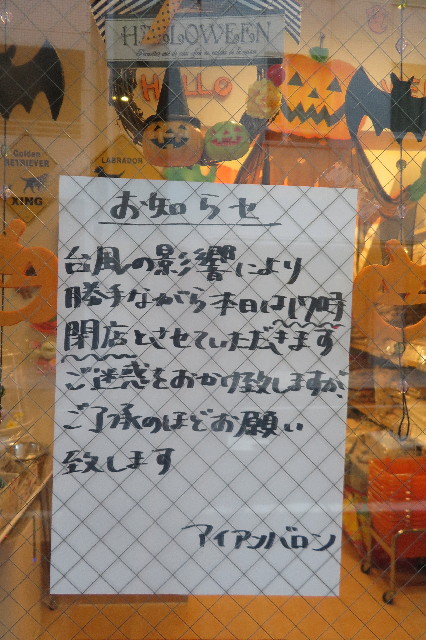 HALLOWEEN
HELLO
Golden
RETRIEVER
XING
LABRADOR
お知らせ
台風の影響により
勝手ながら本日は17時
閉店とさせていただきます
ご迷惑をおかけ致しますが、
ご了承のほどお願い
致します
アイアンバロン